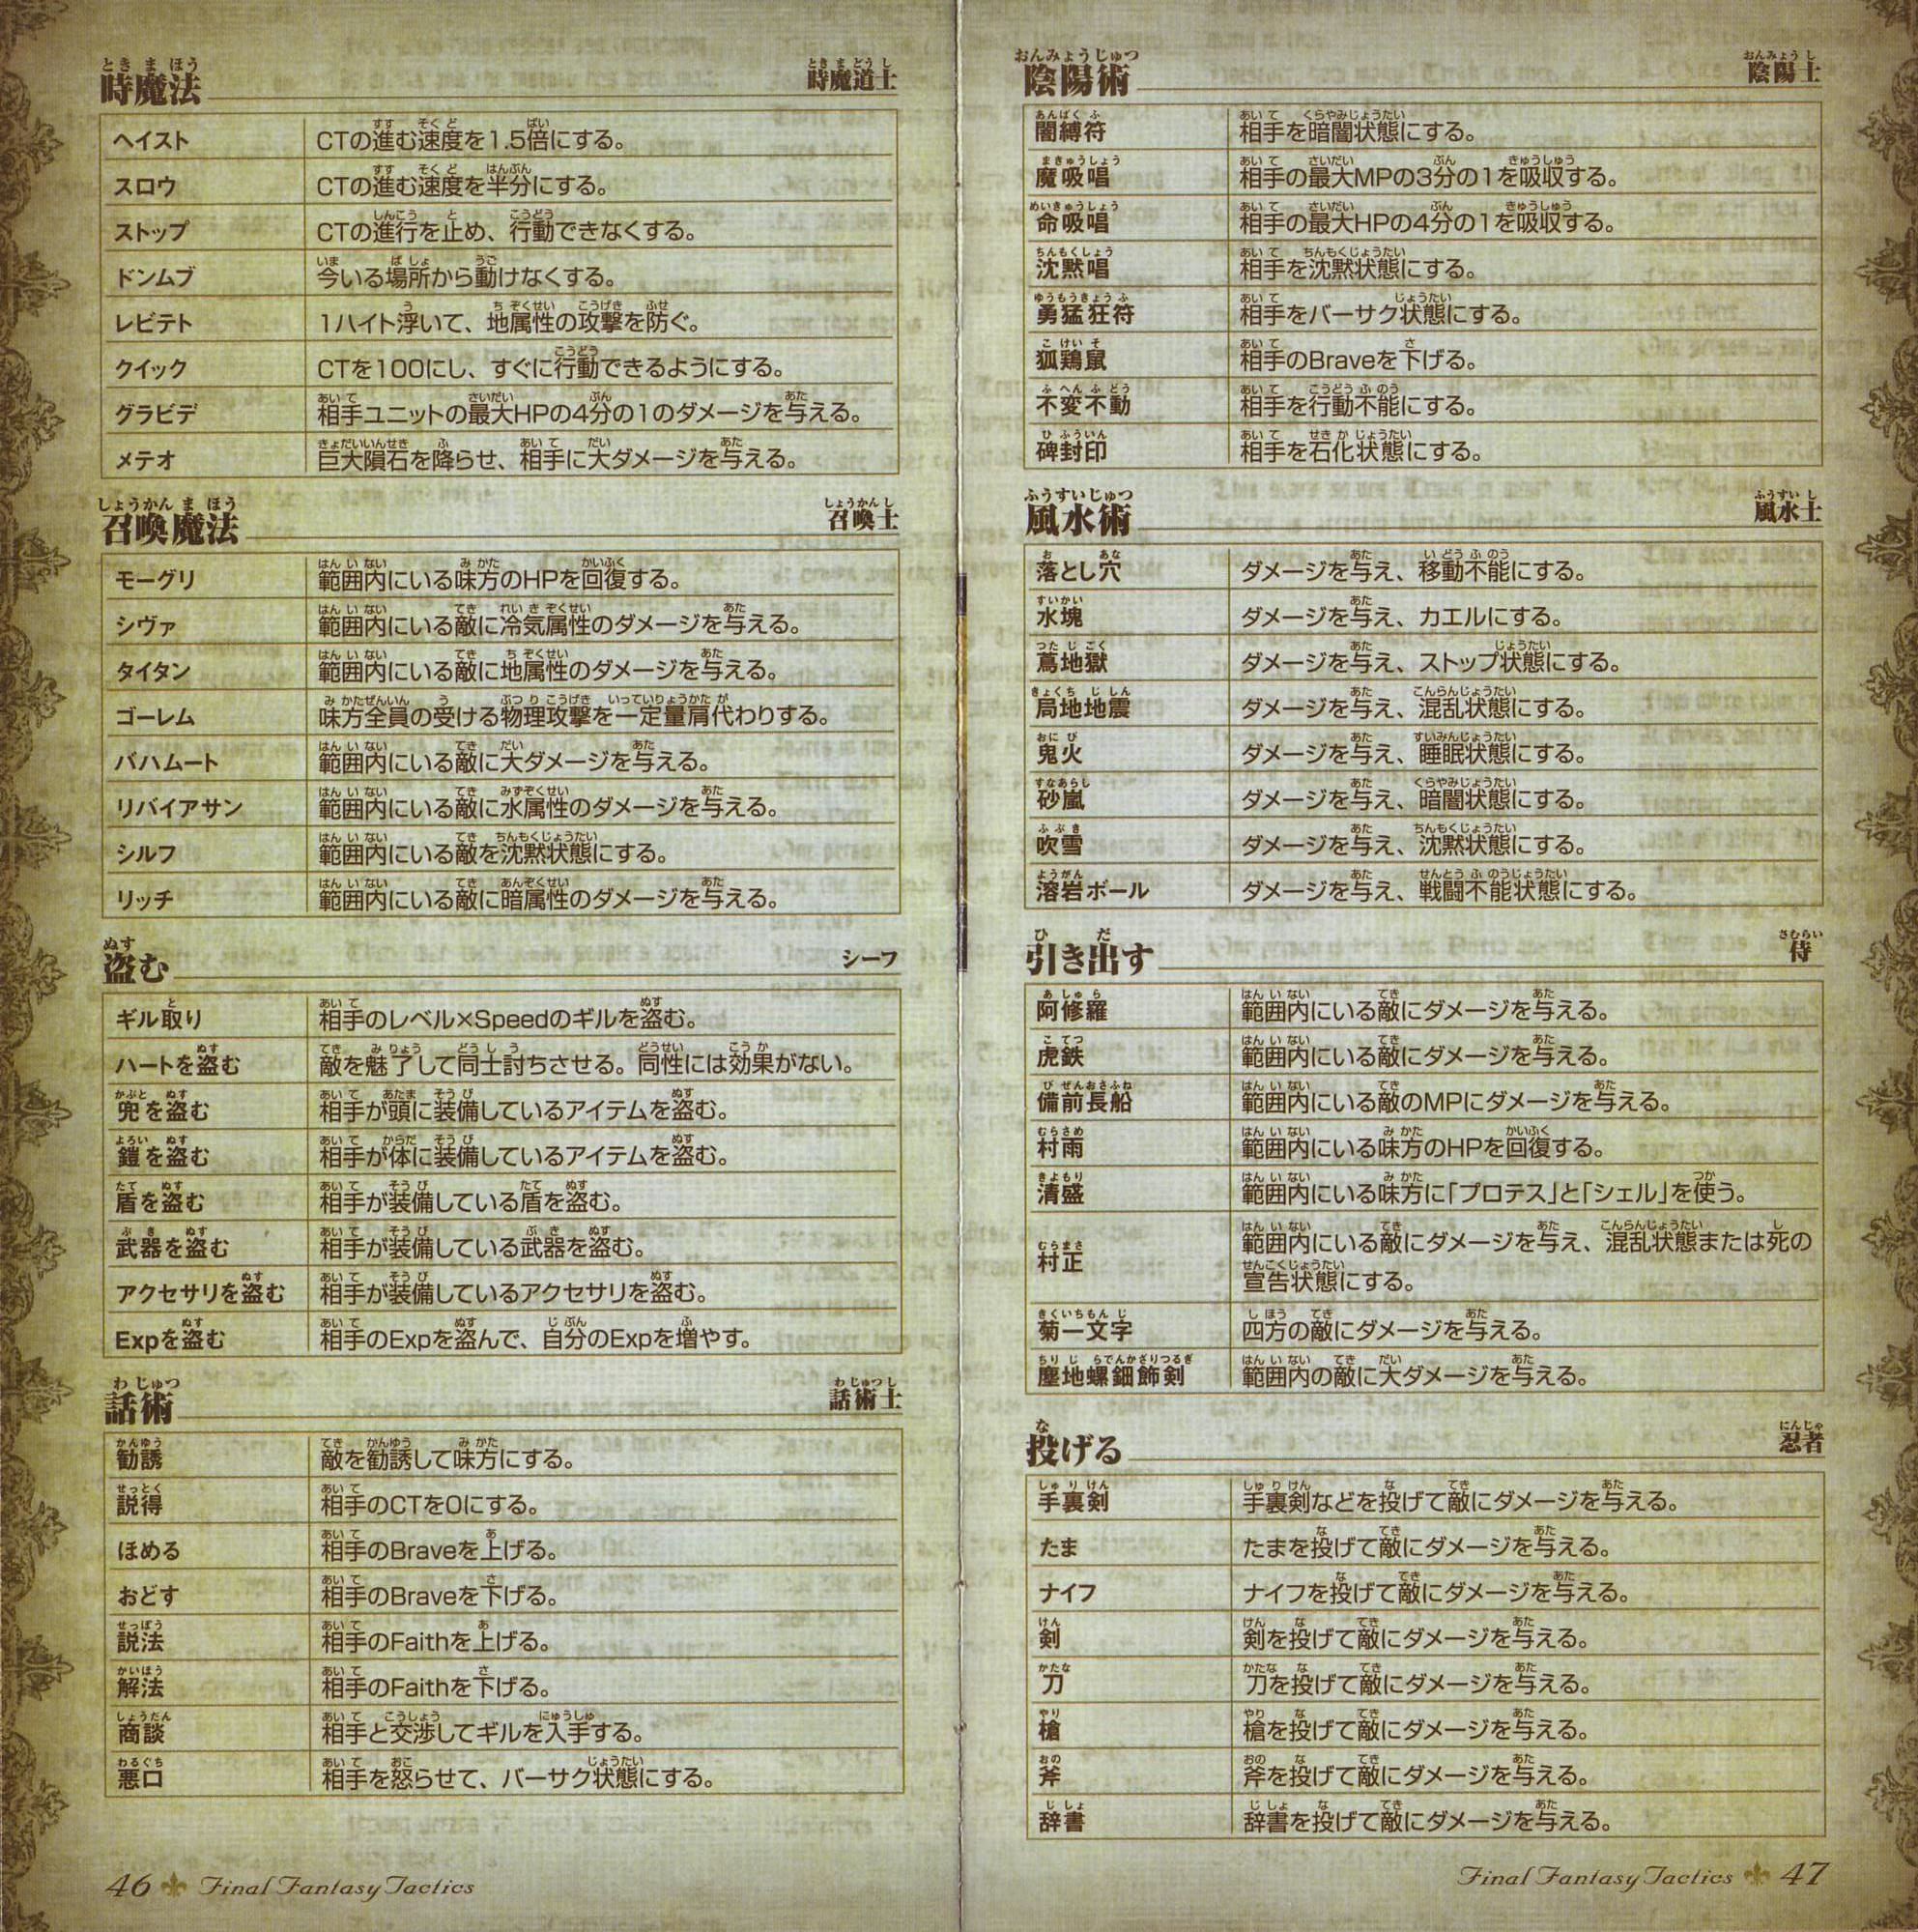 時魔法 時魔道士
ヘイスト CTの進む速度を1.5倍にする。
スロウ CTの進む速度を半分にする。
ストップ CTの進行を止め、行動できなくする。
ドンムブ 今いる場所から動けなくする。
レビテト 1ハイト浮いて、地属性の攻撃を防ぐ。
クイック CTを100にし、すぐに行動できるようにする。
グラビデ 相手ユニットの最大HPの4分の1のダメージを与える。
メテオ 巨大隕石を降らせ、相手に大ダメージを与える。
召喚魔法 召喚士
モーグリ 範囲内にいる味方のHPを回復する。
シヴァ 範囲内にいる敵に冷気属性のダメージを与える。
タイタン 範囲内にいる敵に地属性のダメージを与える。
ゴーレム 味方全員の受ける物理攻撃を一定量肩代わりする。
バハムート 範囲内にいる敵に大ダメージを与える。
リバイアサン 範囲内にいる敵に水属性のダメージを与える。
シルフ 範囲内にいる敵を沈黙状態にする。
リッチ 範囲内にいる敵に暗属性のダメージを与える。
盗む シーフ
ギル取り 相手のレベル×Speedのギルを盗む。
ハートを盗む 敵を魅了して同士討ちさせる。同性には効果がない。
兜を盗む 相手が頭に装備しているアイテムを盗む。
鎧を盗む 相手が体に装備しているアイテムを盗む。
盾を盗む 相手が装備している盾を盗む。
武器を盗む 相手が装備している武器を盗む。
アクセサリを盗む 相手が装備しているアクセサリを盗む。
Expを盗む 相手のExpを盗んで、自分のExpを増やす。
話術 話術士
勧誘 敵を勧誘して味方にする。
説得 相手のCTを0にする。
ほめる 相手のBraveを上げる。
おどす 相手のBraveを下げる。
説法 相手のFaithを上げる。
解法 相手のFaithを下げる。
商談 相手と交渉してギルを入手する。
悪口 相手を怒らせて、バーサク状態にする。
46 Final Fantasy Tactics
陰陽術 陰陽士
闇縛符 相手を暗闇状態にする。
魔吸唱 相手の最大MPの3分の1を吸収する。
命吸唱 相手の最大HPの4分の1を吸収する。
沈黙唱 相手を沈黙状態にする。
勇猛狂符 相手をバーサク状態にする。
狐鶏鼠 相手のBraveを下げる。
不変不動 相手を行動不能にする。
碑封印 相手を石化状態にする。
風水術 風水士
落とし穴 ダメージを与え、移動不能にする。
水塊 ダメージを与え、カエルにする。
蔦地獄 ダメージを与え、ストップ状態にする。
局地地震 ダメージを与え、混乱状態にする。
鬼火 ダメージを与え、睡眠状態にする。
砂嵐 ダメージを与え、暗闇状態にする。
吹雪 ダメージを与え、沈黙状態にする。
溶岩ボール ダメージを与え、戦闘不能状態にする。
引き出す 侍
阿修羅 範囲内にいる敵にダメージを与える。
虎鉄 範囲内にいる敵にダメージを与える。
備前長船 範囲内にいる敵のMPにダメージを与える。
村雨 範囲内にいる味方のHPを回復する。
清盛 範囲内にいる味方に「プロテス」と「シェル」を使う。
村正 範囲内にいる敵にダメージを与え、混乱状態または死の
宣告状態にする。
菊一文字 四方の敵にダメージを与える。
塵地螺鈿飾剣 範囲内の敵に大ダメージを与える。
投げる 忍者
手裏剣 手裏剣などを投げて敵にダメージを与える。
たま たまを投げて敵にダメージを与える。
ナイフ ナイフを投げて敵にダメージを与える。
剣 剣を投げて敵にダメージを与える。
刀 刀を投げて敵にダメージを与える。
槍 槍を投げて敵にダメージを与える。
斧 斧を投げて敵にダメージを与える。
辞書 辞書を投げて敵にダメージを与える。
Final Fantasy Tactics 47